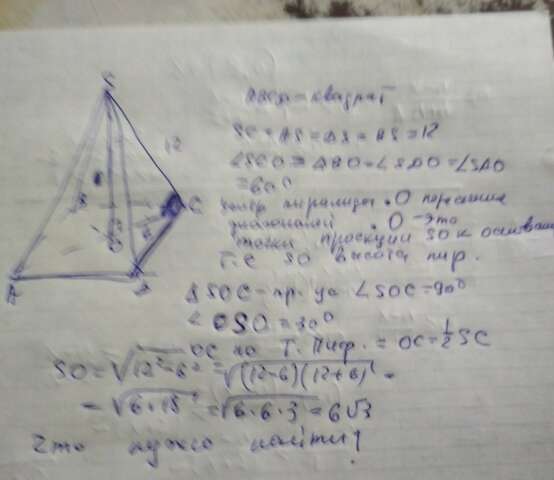 S
12
B
C
O
A
D
ABCD - квадрат
SC = AS = DS = BS = 12
∠SCO = ∠SBO = ∠SDO = ∠SAO
= 60°
центр пирамиды . O пересечение
диагоналей . O - это
точка проекции SO к основан
т.е SO высота пир.
ΔSOC - пр. уг ∠SOC = 90°
∠OSO = 30°
OC по т. Пиф. = OC = 1/2 SC
SO = √12² - 6² = √(12-6)(12+6) =
= √6·18 = √6·6·3 = 6√3
Что нужно найти?